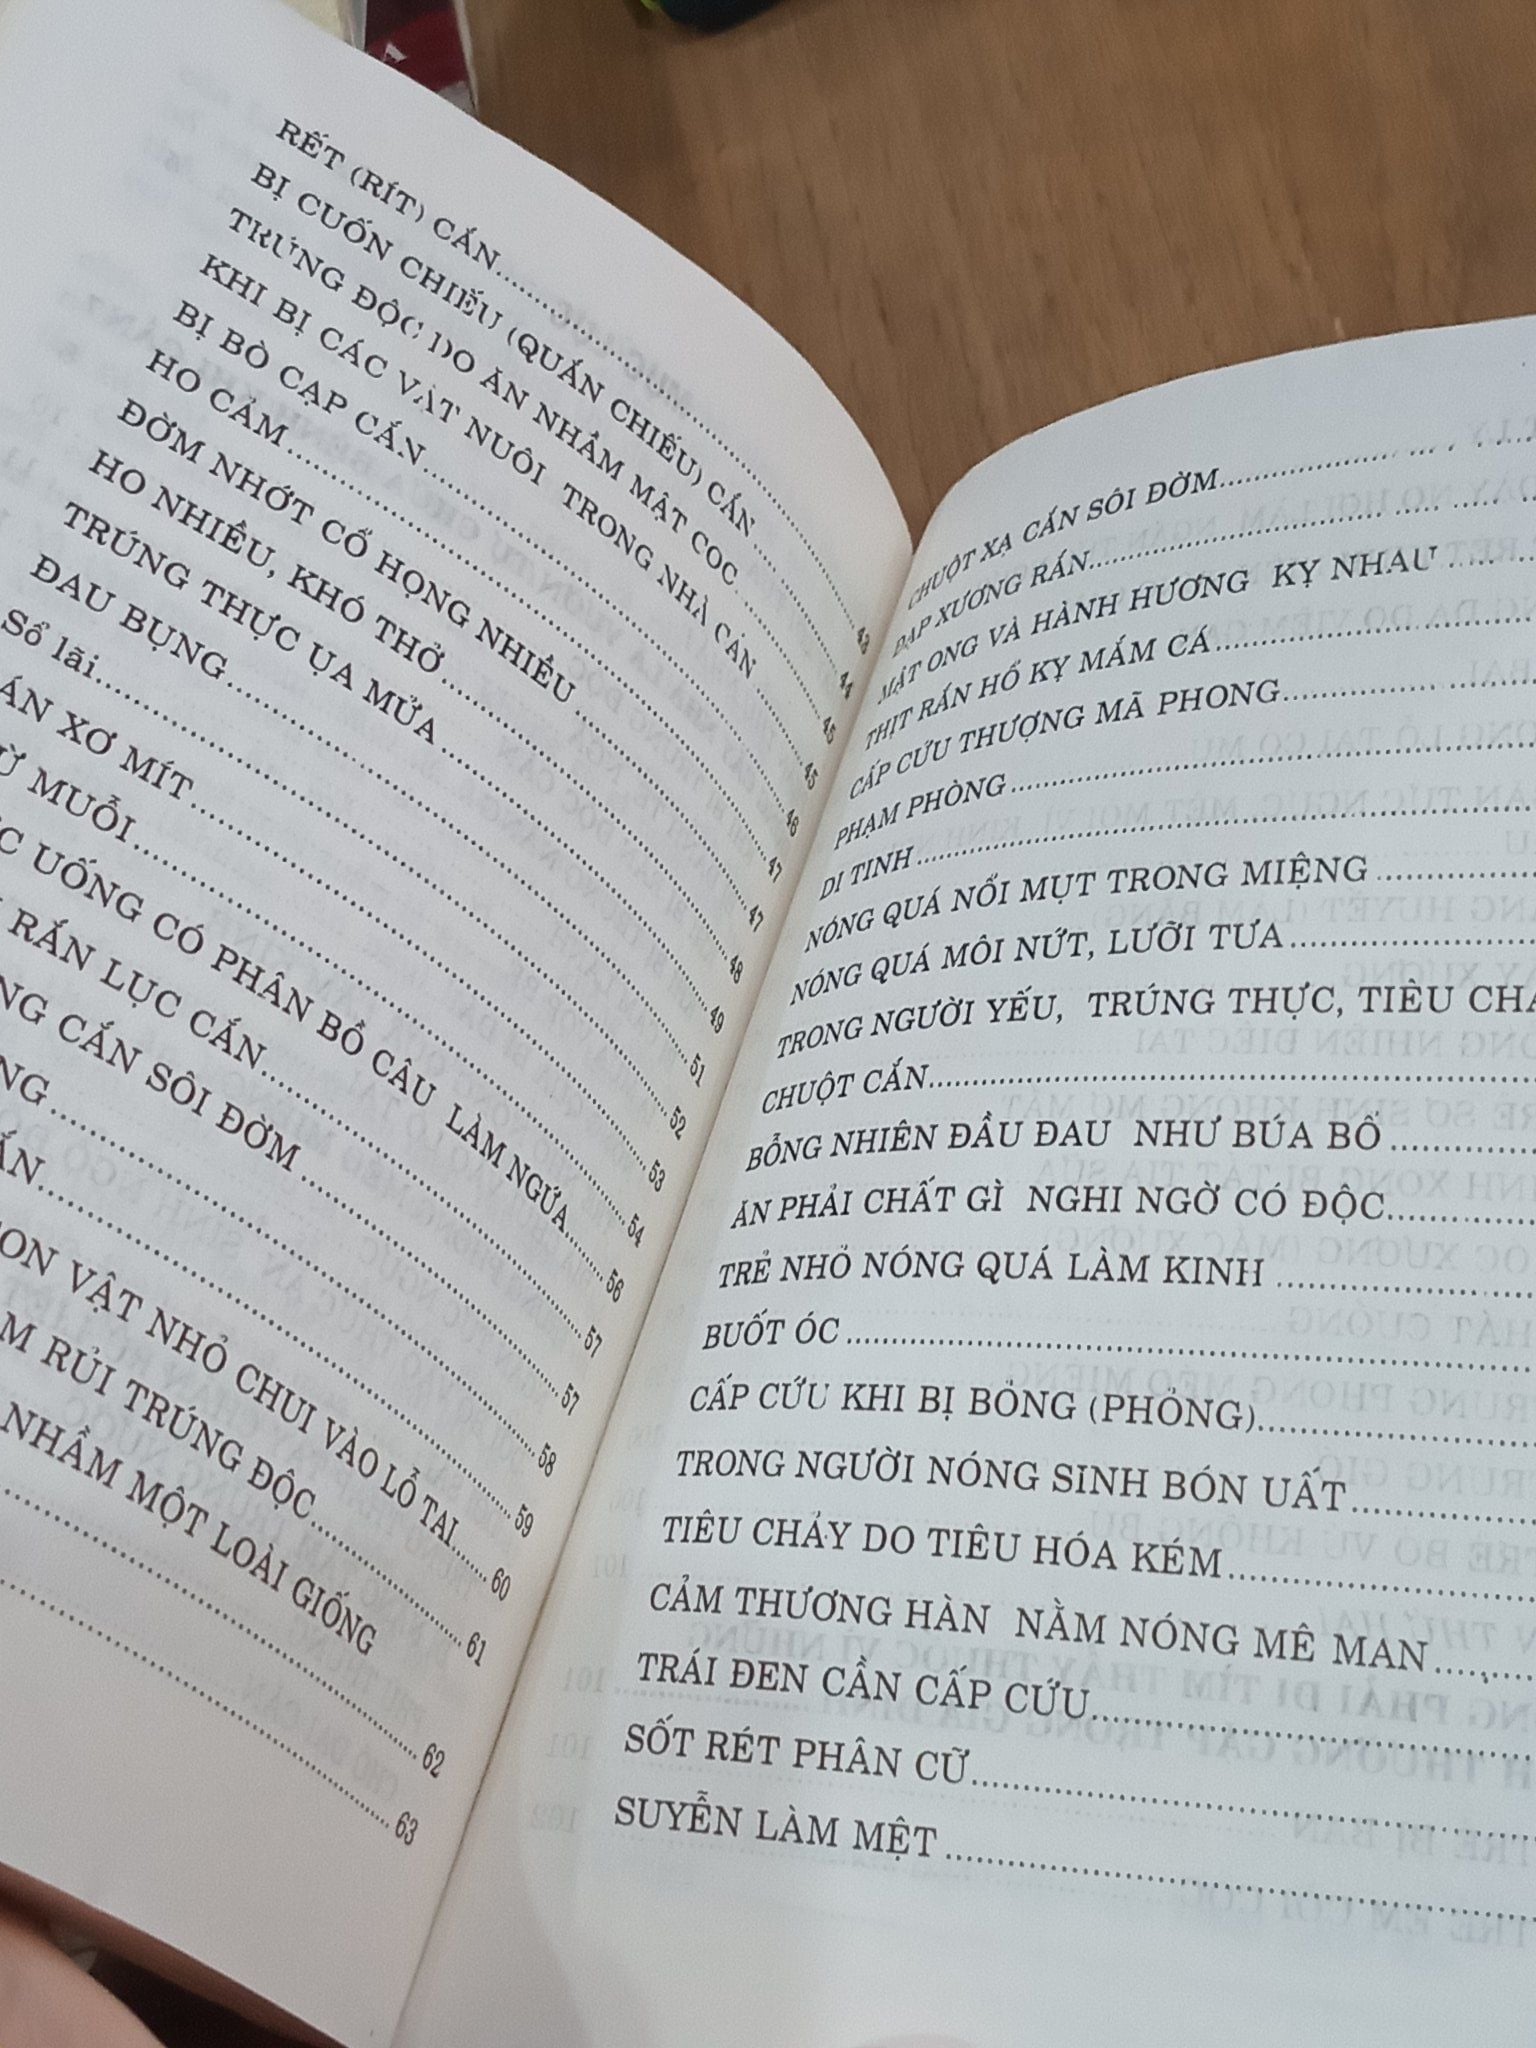 RẾT (RÍT) CẮN
BỊ CUỐN CHIẾU (QUẤN CHIẾU) CẮN 43
TRÚNG ĐỘC DO ĂN NHẦM MẬT COC 44
KHI BỊ CÁC VẬT NUÔI TRONG NHÀ CẮN 45
BỊ BÒ CẠP CẮN 45
HO CẢM 46
ĐỜM NHỚT CỔ HỌNG NHIỀU 47
HO NHIỀU, KHÓ THỞ 47
TRÚNG THỰC ỤA MỬA 48
ĐAU BỤNG 49
Sổ lãi 51
ÁN XƠ MÍT 52
Ừ MUỖI 53
C UỐNG CÓ PHÂN BỒ CÂU LÀM NGỨA 54
RẮN LỤC CẮN 56
NG CẮN SÔI ĐỜM 57
NG 57
ẮN 58
ON VẬT NHỎ CHUI VÀO LỖ TAI 59
M RỦI TRÚNG ĐỘC 60
NHẦM MỘT LOÀI GIỐNG
61
62
63
CHUỘT XẠ CẮN SÔI ĐỜM
ĐẠP XƯƠNG RẮN
MẬT ONG VÀ HÀNH HƯƠNG KỴ NHAU
THỊT RẮN HỔ KỴ MẮM CÁ
CẤP CỨU THƯỢNG MÃ PHONG
PHẠM PHÒNG
DI TINH
NÓNG QUÁ NỔI MỤT TRONG MIỆNG
NÓNG QUÁ MÔI NỨT, LƯỠI TƯA
TRONG NGƯỜI YẾU, TRÚNG THỰC, TIÊU CHẢ
CHUỘT CẮN
BỖNG NHIÊN ĐẦU ĐAU NHƯ BÚA BỔ
ĂN PHẢI CHẤT GÌ NGHI NGỜ CÓ ĐỘC
TRẺ NHỎ NÓNG QUÁ LÀM KINH
BUỐT ÓC
CẤP CỨU KHI BỊ BỎNG (PHỎNG)
TRONG NGƯỜI NÓNG SINH BÓN UẤT
TIÊU CHẢY DO TIÊU HÓA KÉM
CẢM THƯƠNG HÀN NẰM NÓNG MÊ MAN
TRÁI ĐEN CẦN CẤP CỨU
SỐT RÉT PHÂN CỮ
SUYỄN LÀM MỆT